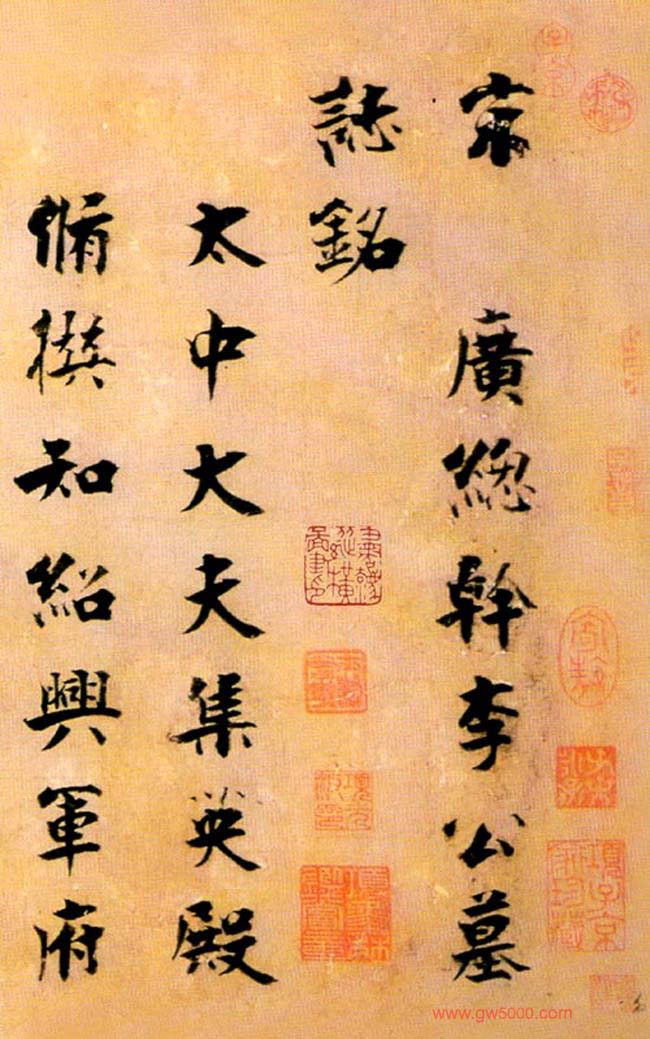 宋　廣總幹李公墓
誌銘
太中大夫集英殿
脩撰知紹興軍府
項子京家珍藏
www.gw5000.com